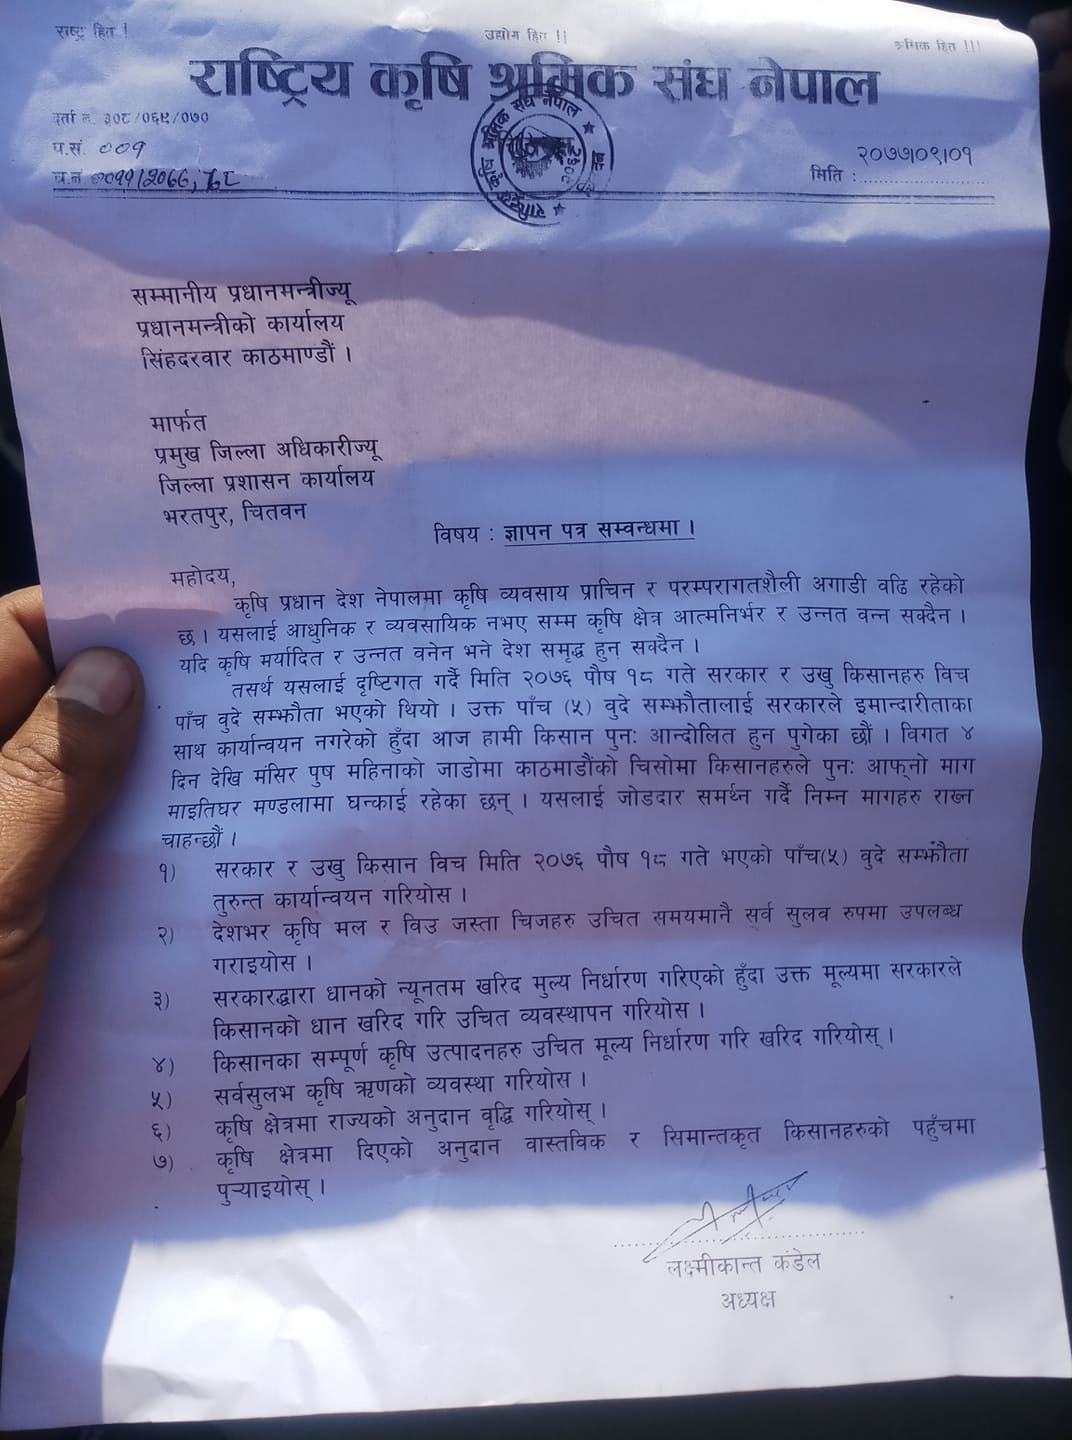 राष्ट्र हित !
उद्योग हित !!
श्रमिक हित !!!
राष्ट्रिय कृषि श्रमिक संघ नेपाल
दर्ता नं. ३०८/०६९/०७०
प.सं. ००१
च.नं
मिति : २०७७/०९/०१
सम्मानीय प्रधानमन्त्रीज्यू
प्रधानमन्त्रीको कार्यालय
सिंहदरवार काठमाण्डौं ।
मार्फत
प्रमुख जिल्ला अधिकारीज्यू
जिल्ला प्रशासन कार्यालय
भरतपुर, चितवन
विषय : ज्ञापन पत्र सम्वन्धमा ।
महोदय,
कृषि प्रधान देश नेपालमा कृषि व्यवसाय प्राचिन र परम्परागतशैली अगाडी वढि रहेको
छ । यसलाई आधुनिक र व्यवसायिक नभए सम्म कृषि क्षेत्र आत्मनिर्भर र उन्नत वन्न सक्दैन ।
यदि कृषि मर्यादित र उन्नत वनेन भने देश समृद्ध हुन सक्दैन ।
तसर्थ यसलाई दृष्टिगत गर्दै मिति २०७६ पौष १८ गते सरकार र उखु किसानहरु विच
पाँच वुदे सम्झौता भएको थियो । उक्त पाँच (५) वुदे सम्झौतालाई सरकारले इमान्दारीताका
साथ कार्यान्वयन नगरेको हुँदा आज हामी किसान पुनः आन्दोलित हुन पुगेका छौं । विगत ४
दिन देखि मंसिर पुष महिनाको जाडोमा काठमाडौंको चिसोमा किसानहरुले पुनः आफ्नो माग
माइतिघर मण्डलामा घन्काई रहेका छन् । यसलाई जोडदार समर्थ्न गर्दै निम्न मागहरु राख्न
चाहन्छौं ।
१) सरकार र उखु किसान विच मिति २०७६ पौष १८ गते भएको पाँच(५) वुदे सम्झौता
तुरुन्त कार्यान्वयन गरियोस ।
२) देशभर कृषि मल र विउ जस्ता चिजहरु उचित समयमानै सर्व सुलव रुपमा उपलब्ध
गराइयोस ।
३) सरकारद्धारा धानको न्यूनतम खरिद मुल्य निर्धारण गरिएको हुँदा उक्त मूल्यमा सरकारले
किसानको धान खरिद गरि उचित व्यवस्थापन गरियोस ।
४) किसानका सम्पूर्ण कृषि उत्पादनहरु उचित मूल्य निर्धारण गरि खरिद गरियोस् ।
५) सर्वसुलभ कृषि ऋणको व्यवस्था गरियोस ।
६) कृषि क्षेत्रमा राज्यको अनुदान वृद्धि गरियोस् ।
७) कृषि क्षेत्रमा दिएको अनुदान वास्तविक र सिमान्तकृत किसानहरुको पहुँचमा
पुर्‍याइयोस् ।
लक्ष्मीकान्त कंडेल
अध्यक्ष